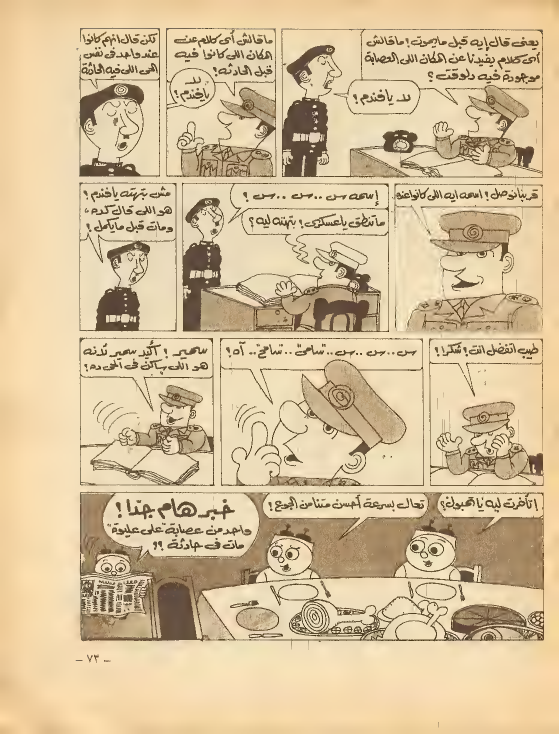 يعنى قال إيه قبل ما يموت؟ ما قالش
أى كلام يفيدنا عن المكان اللى العصابة
موجودة فيه دلوقت؟
لا يافندم!
ما قالش أى كلام عن
المكان اللى كانوا فيه
قبل الحادثه؟
لا
يافندم!
لكن قال انهم كانوا
عند واحد فى نفس
الحى اللى فيه الحادثة
قربنا نوصل! اسمه ايه اللى كانوا عنده
إسمه س .. س .. س ؟
ما تنطق يا عسكرى! بتهته ليه؟
مش بتهته يافندم!
هو اللى قال كده،
ومات قبل ما يكمل!
طيب اتفضل انت! شكراً!
س .. س .. س .. "سامى" .. "سامح" .. آه!
سمير! أكيد سمير لأنه
هو اللى ساكن فى الحى ده!
إتأخرت ليه يا تهبول؟
تعال بسرعة أحسن متنا من الجوع!
خبر هام جدا!
واحد من عصابة "على عليوة"
مات فى حادثة!؟
- ٧٣ -